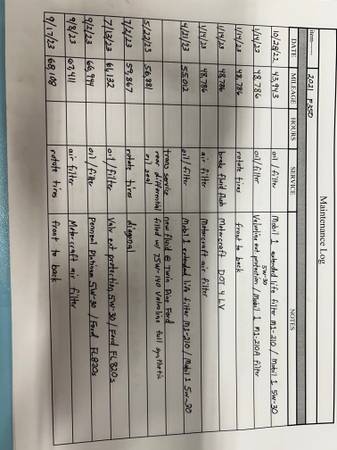 Maintenance Log
Item: 2021 F350
DATE MILEAGE HOURS SERVICE NOTES
10/28/22 43,943 oil / filter Mobil 1 extended life filter M1-210 / Mobil 1 5W-30
1/14/23 48,786 oil/filter 5W-30 Valvoline ext protection / Mobil 1 M1-210A filter
1/14/23 48,786 rotate tires front to back
1/14/23 48,786 brake fluid flush Motorcraft DOT 4 LV
1/14/23 48,786 air filter Motorcraft air filter
4/21/23 55,012 oil/filter Mobil 1 extended life filter M1-210 / Mobil 1 5W-30
trans service new fluid @ Twin Pine Ford
5/22/23 56,381 rear differential filled w/ 75W-140 Valvoline full synthetic
oil seal
7/2/23 59,867 rotate tires diagonal
7/13/23 61,132 oil/filter Valv ext protection 5W-30 / Ford FL820s
9/2/23 66,944 oil/filter Pennzoil Platinum 5W-30 / Ford FL820s
9/8/23 67,411 air filter Motorcraft air filter
9/17/23 68,108 rotate tires front to back